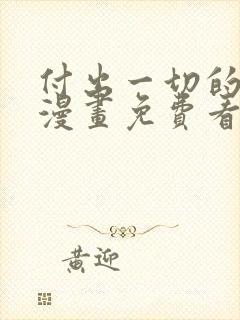 付出一切的
漫畫免費看
黃迎